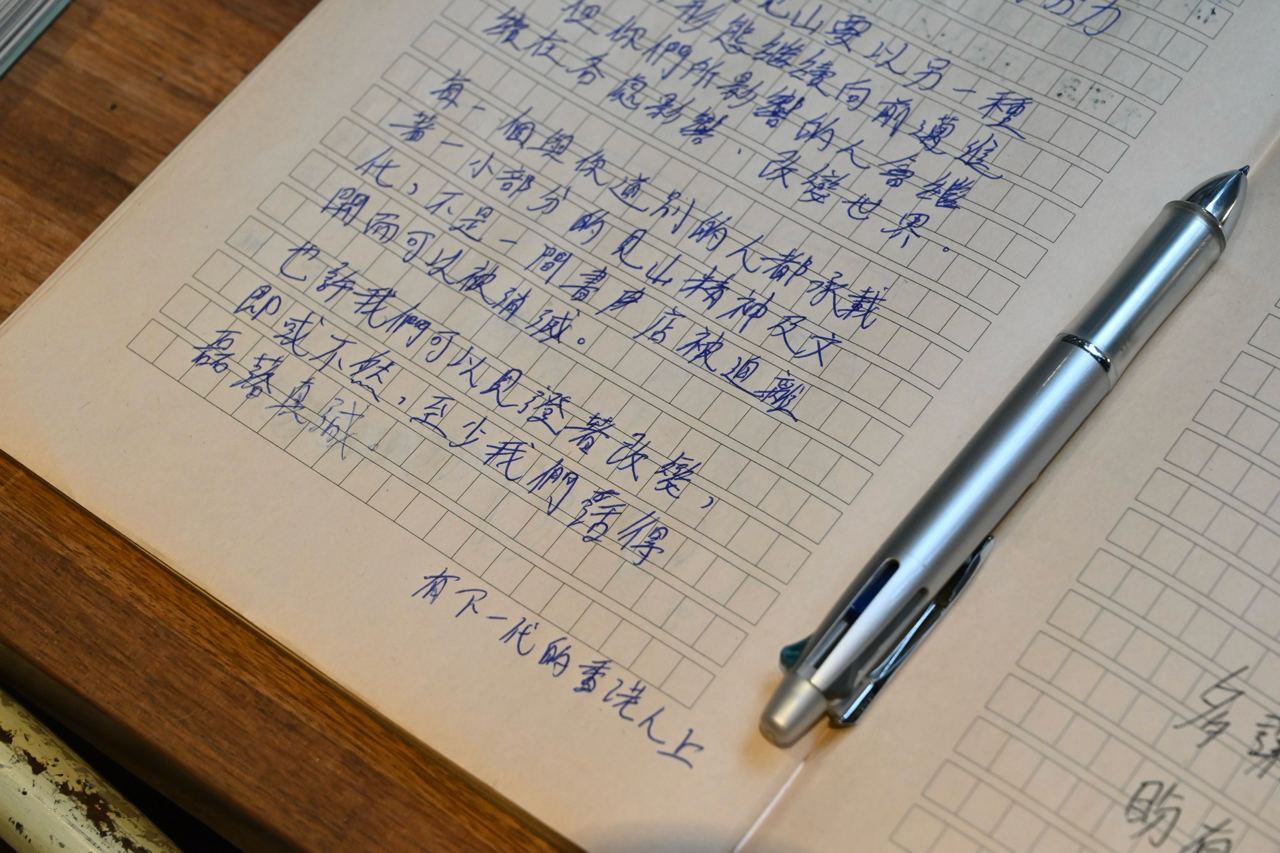 努力
見山要以另一種
形態繼續向前邁進
但你們所影響的人會繼
續在各處影響．改變世界。
每一個與你道別的人都承載
著一小部分的見山精神及文
化，不是一間書店被迫離
開而可以被消滅。
也許我們可以見證著改變，
即或不然，至少我們活得
磊落真誠．
有下一代的香港人上
的有